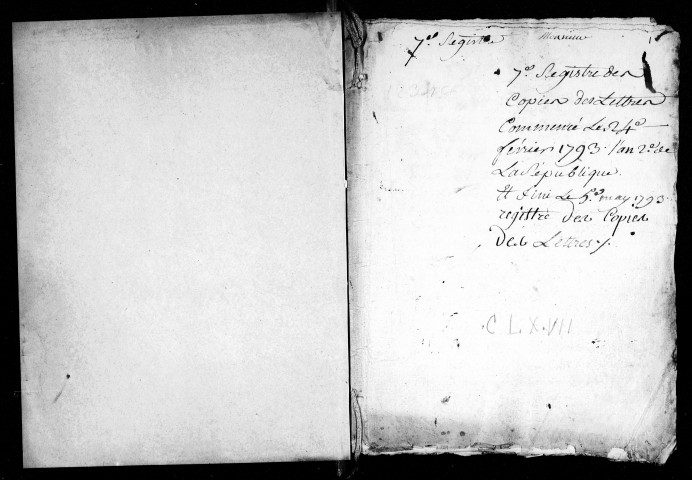 7e. Registre
Monsieur
7e. Registre des
Copies des Lettres
Commencé Le 24e
février 1793. l'an 2e. de
La République.
Et Finie Le 5e. may 1793.
rejittre des Copies
Des Lettres /.
C L X VII